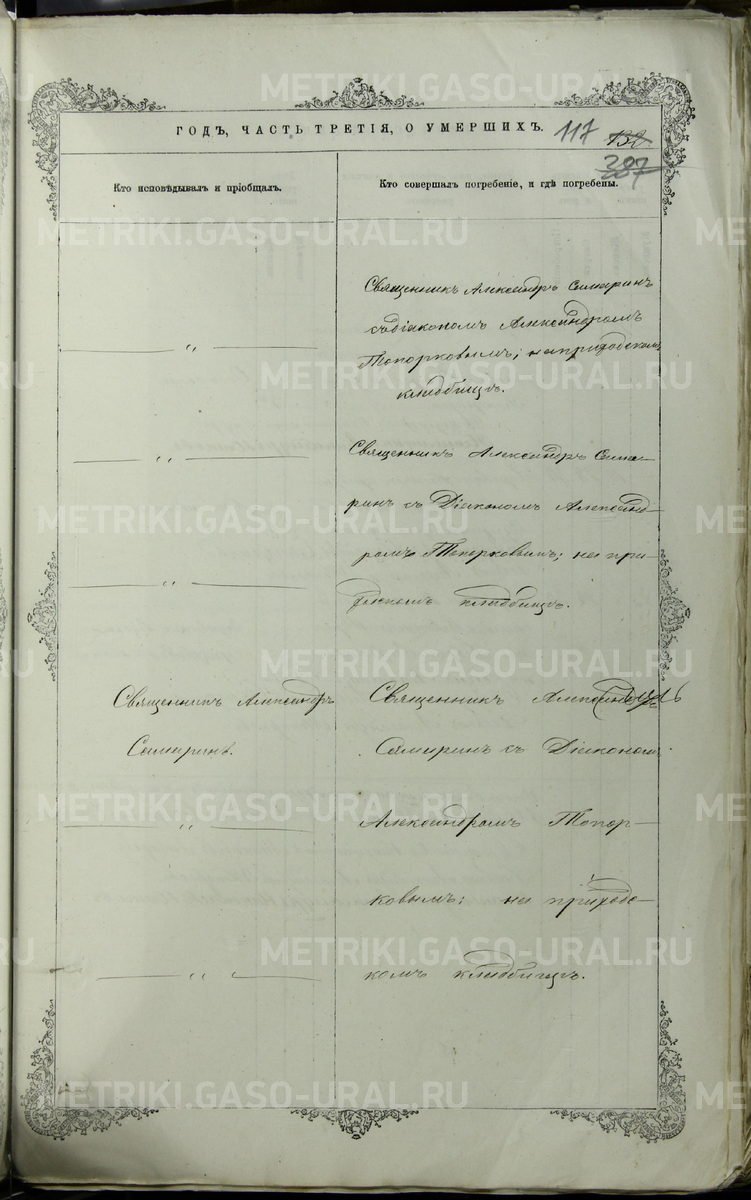 ГОДЪ, ЧАСТЬ ТРЕТІЯ, О УМЕРШИХЪ.
117
138
287
Кто исповѣдывалъ и пріобщалъ.
Кто совершалъ погребеніе, и гдѣ погребены.
Священникъ Александръ Симаринъ
съ діакономъ Александромъ
Топорковымъ; на приходскомъ
кладбищѣ.
— „ —
Священникъ Александръ Сима-
ринъ съ Діакономъ Александ-
ромъ Топорковымъ; на при-
ходскомъ кладбищѣ.
— „ —
— „ —
Священникъ Александръ
Симаринъ.
Священникъ Александръ
Симаринъ съ Діакономъ
Александромъ Топор-
ковымъ; на приходс-
комъ кладбищѣ.
— „ —
— „ —
METRIKI.GASO-URAL.RU